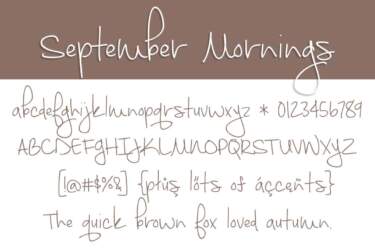 September Mornings
abcdefghijklmnopqrstuvwxyz * 0123456789
ABCDEFGHIJKLMNOPQRSTUVWXYZ
[!@#$%&] {plüs löts of áççeñts}
The quick brown fox loved autumn.